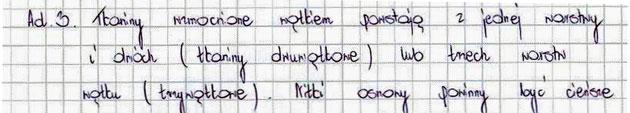 Ad. 3. Tkaniny wzmocnione wątkiem powstają z jednej warstwy
i dwóch (tkaniny dwuwątkowe) lub trzech warstw
wątku (trzywątkowe). Nitki osnowy powinny być cieńsze